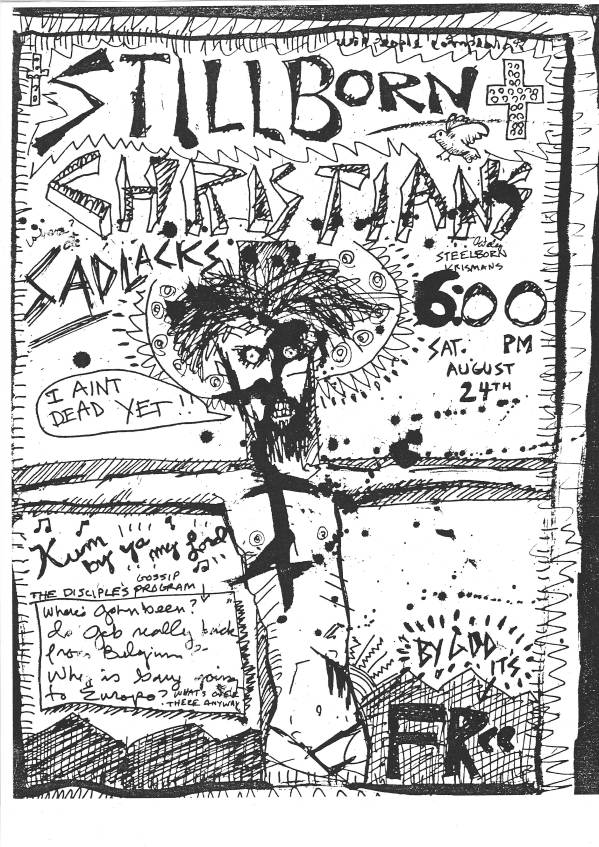 will people complain?
STILLBORN
CHRISTIANS
SADLACKS
STEELBORN
KRISMANS
6:00
SAT. PM
AUGUST
24TH
I AINT
DEAD YET!!
Kum by ya my Lord
GOSSIP
THE DISCIPLE'S PROGRAM
Where's John been?
Is Geb really back
from Belgium?
Why is going
to Europe? WHAT'S OVER
THERE ANYWAY
BY GOD
ITS
FREE